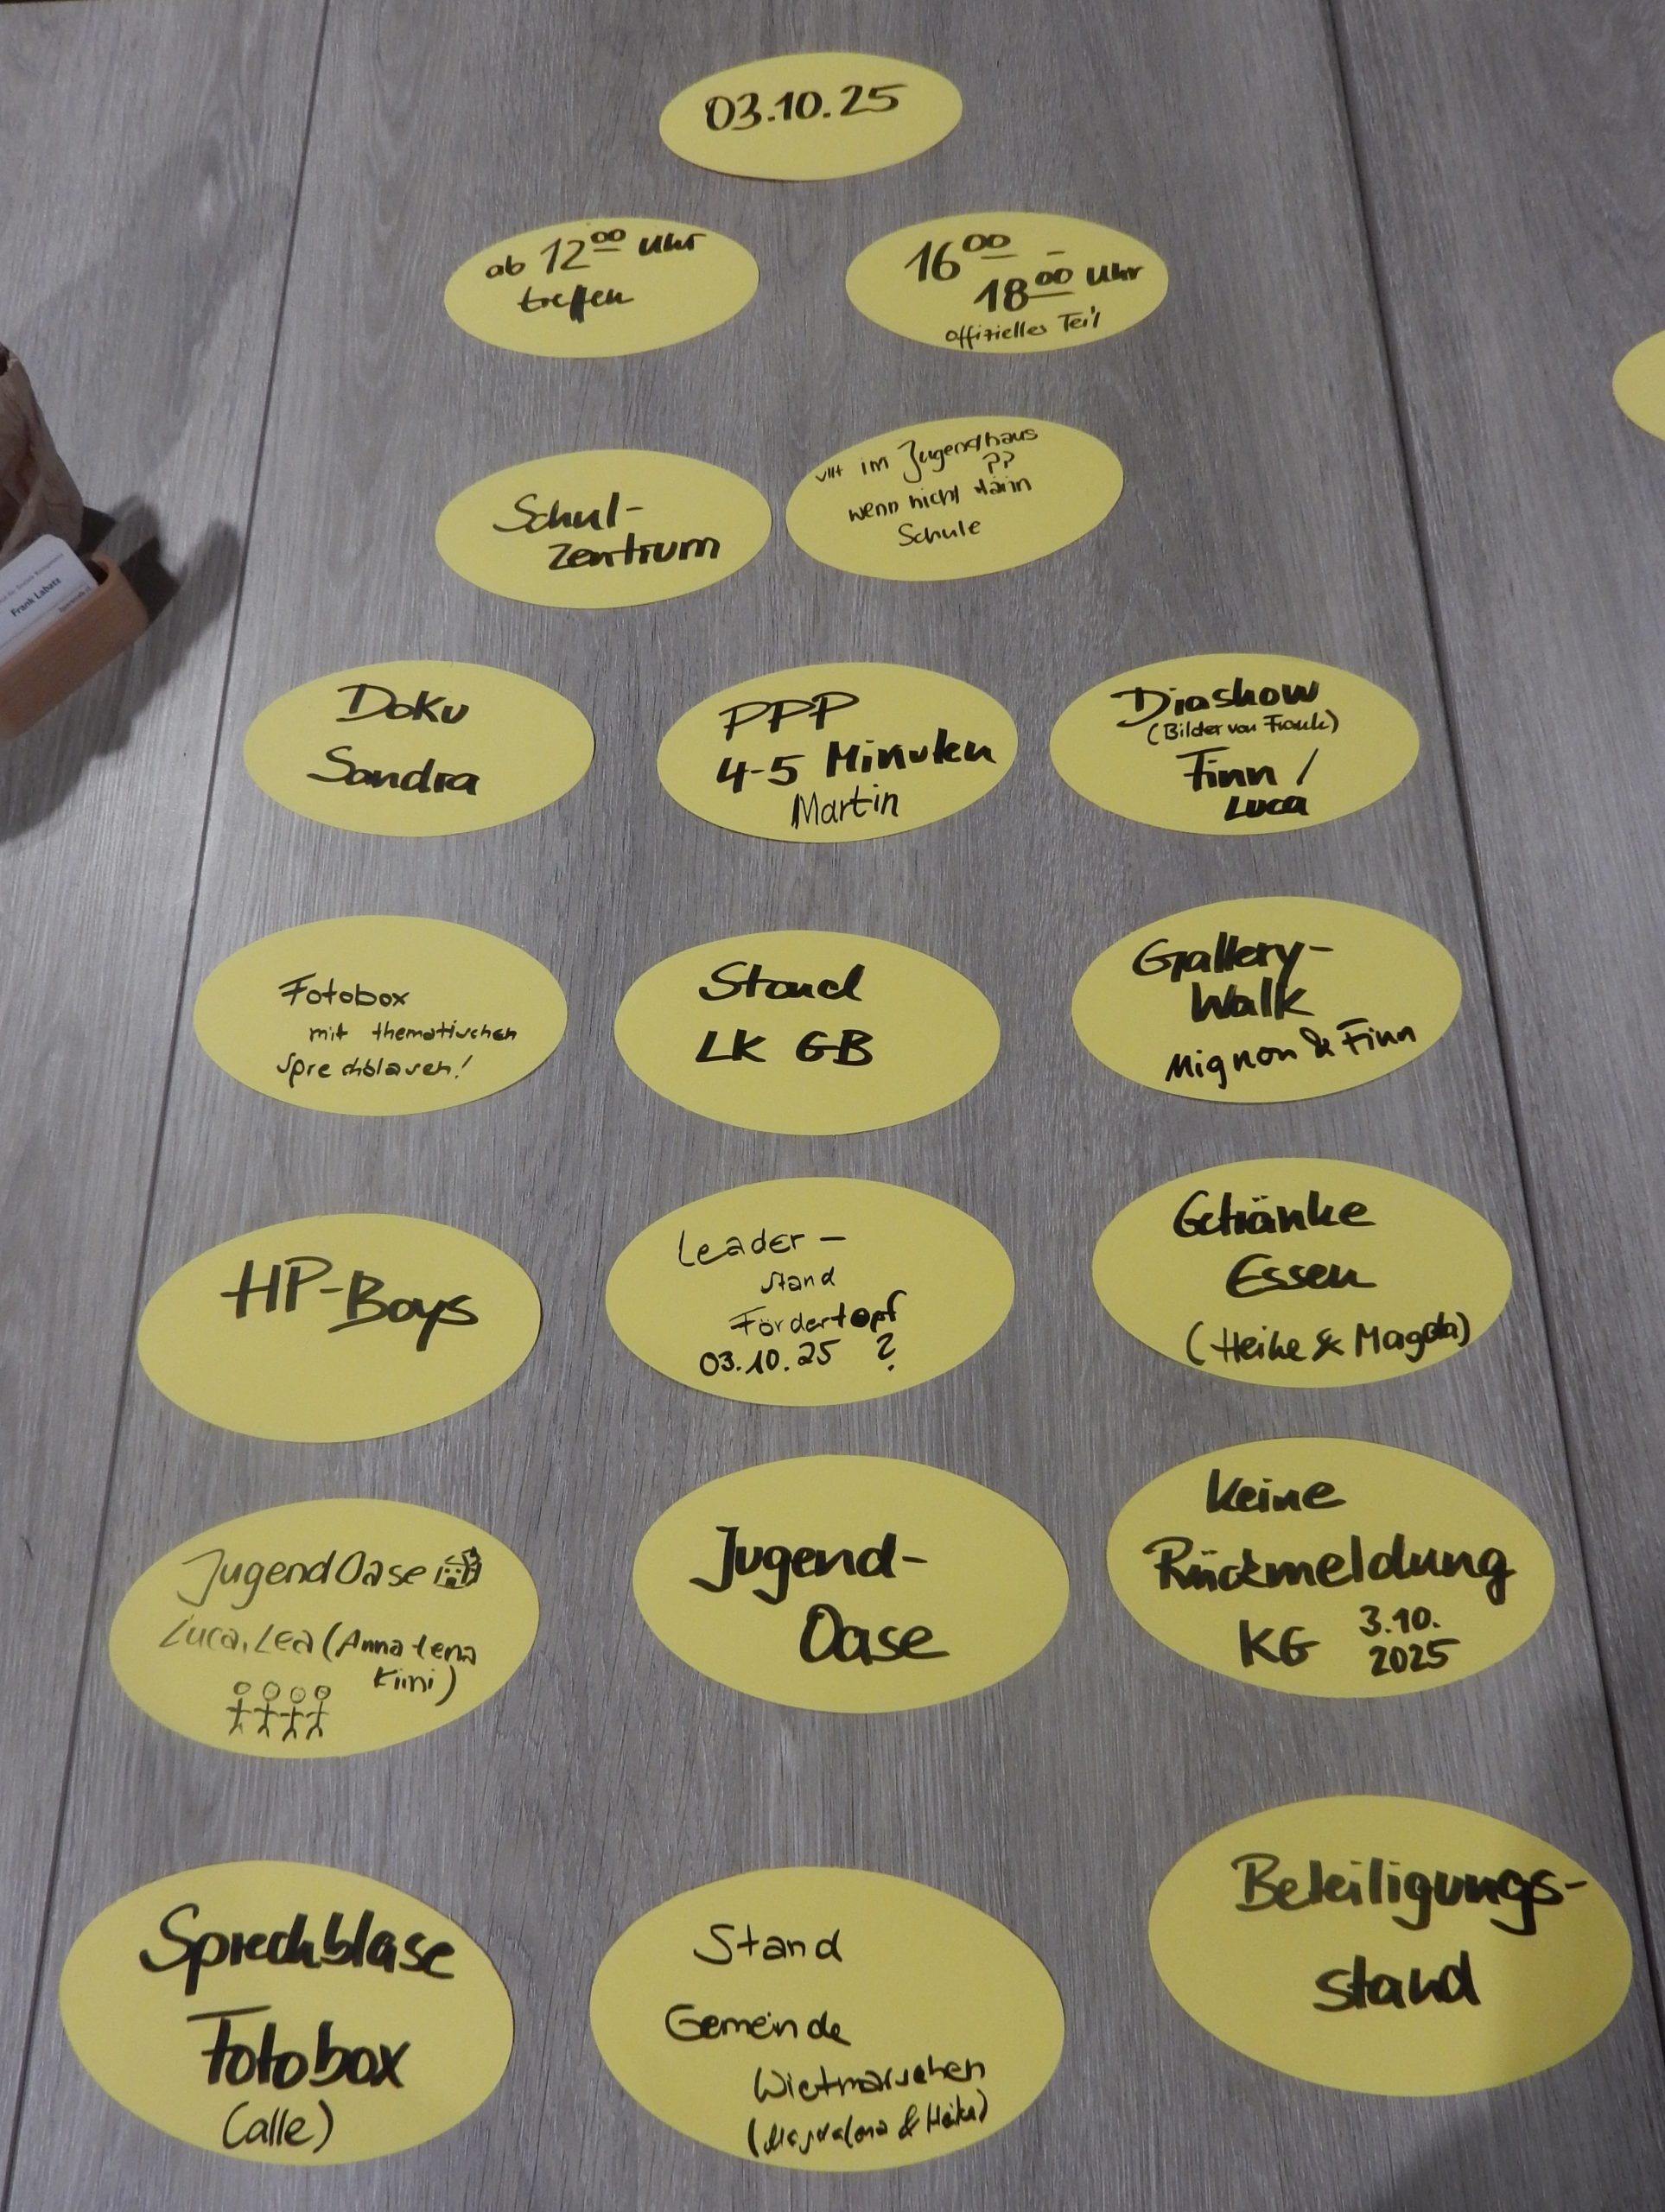 03.10.25
ab 12⁰⁰ Uhr
treffen
16⁰⁰ -
18⁰⁰ Uhr
offizielles Teil
Schul-
zentrum
vllt im Jugendhaus
??
wenn nicht dann
Schule
Frank Labatz
Doku
Sandra
PPP
4-5 Minuten
Martin
Diashow
(Bilder von Frank)
Finn /
Luca
Fotobox
mit thematischen
Sprechblasen!
Stand
LK GB
Gallery-
Walk
Mignon & Finn
HP-Boys
Leader-
stand
Fördertopf
03.10.25 ?
Getränke
Essen
(Heike & Magda)
JugendOase
Luca, Lea (Anna Lena
Kimi)
Jugend-
Oase
Keine
Rückmeldung
KG 3.10.
2025
Sprechblase
Fotobox
(alle)
Stand
Gemeinde
Wietmarschen
(Magdalena & Heike)
Beteiligungs-
stand